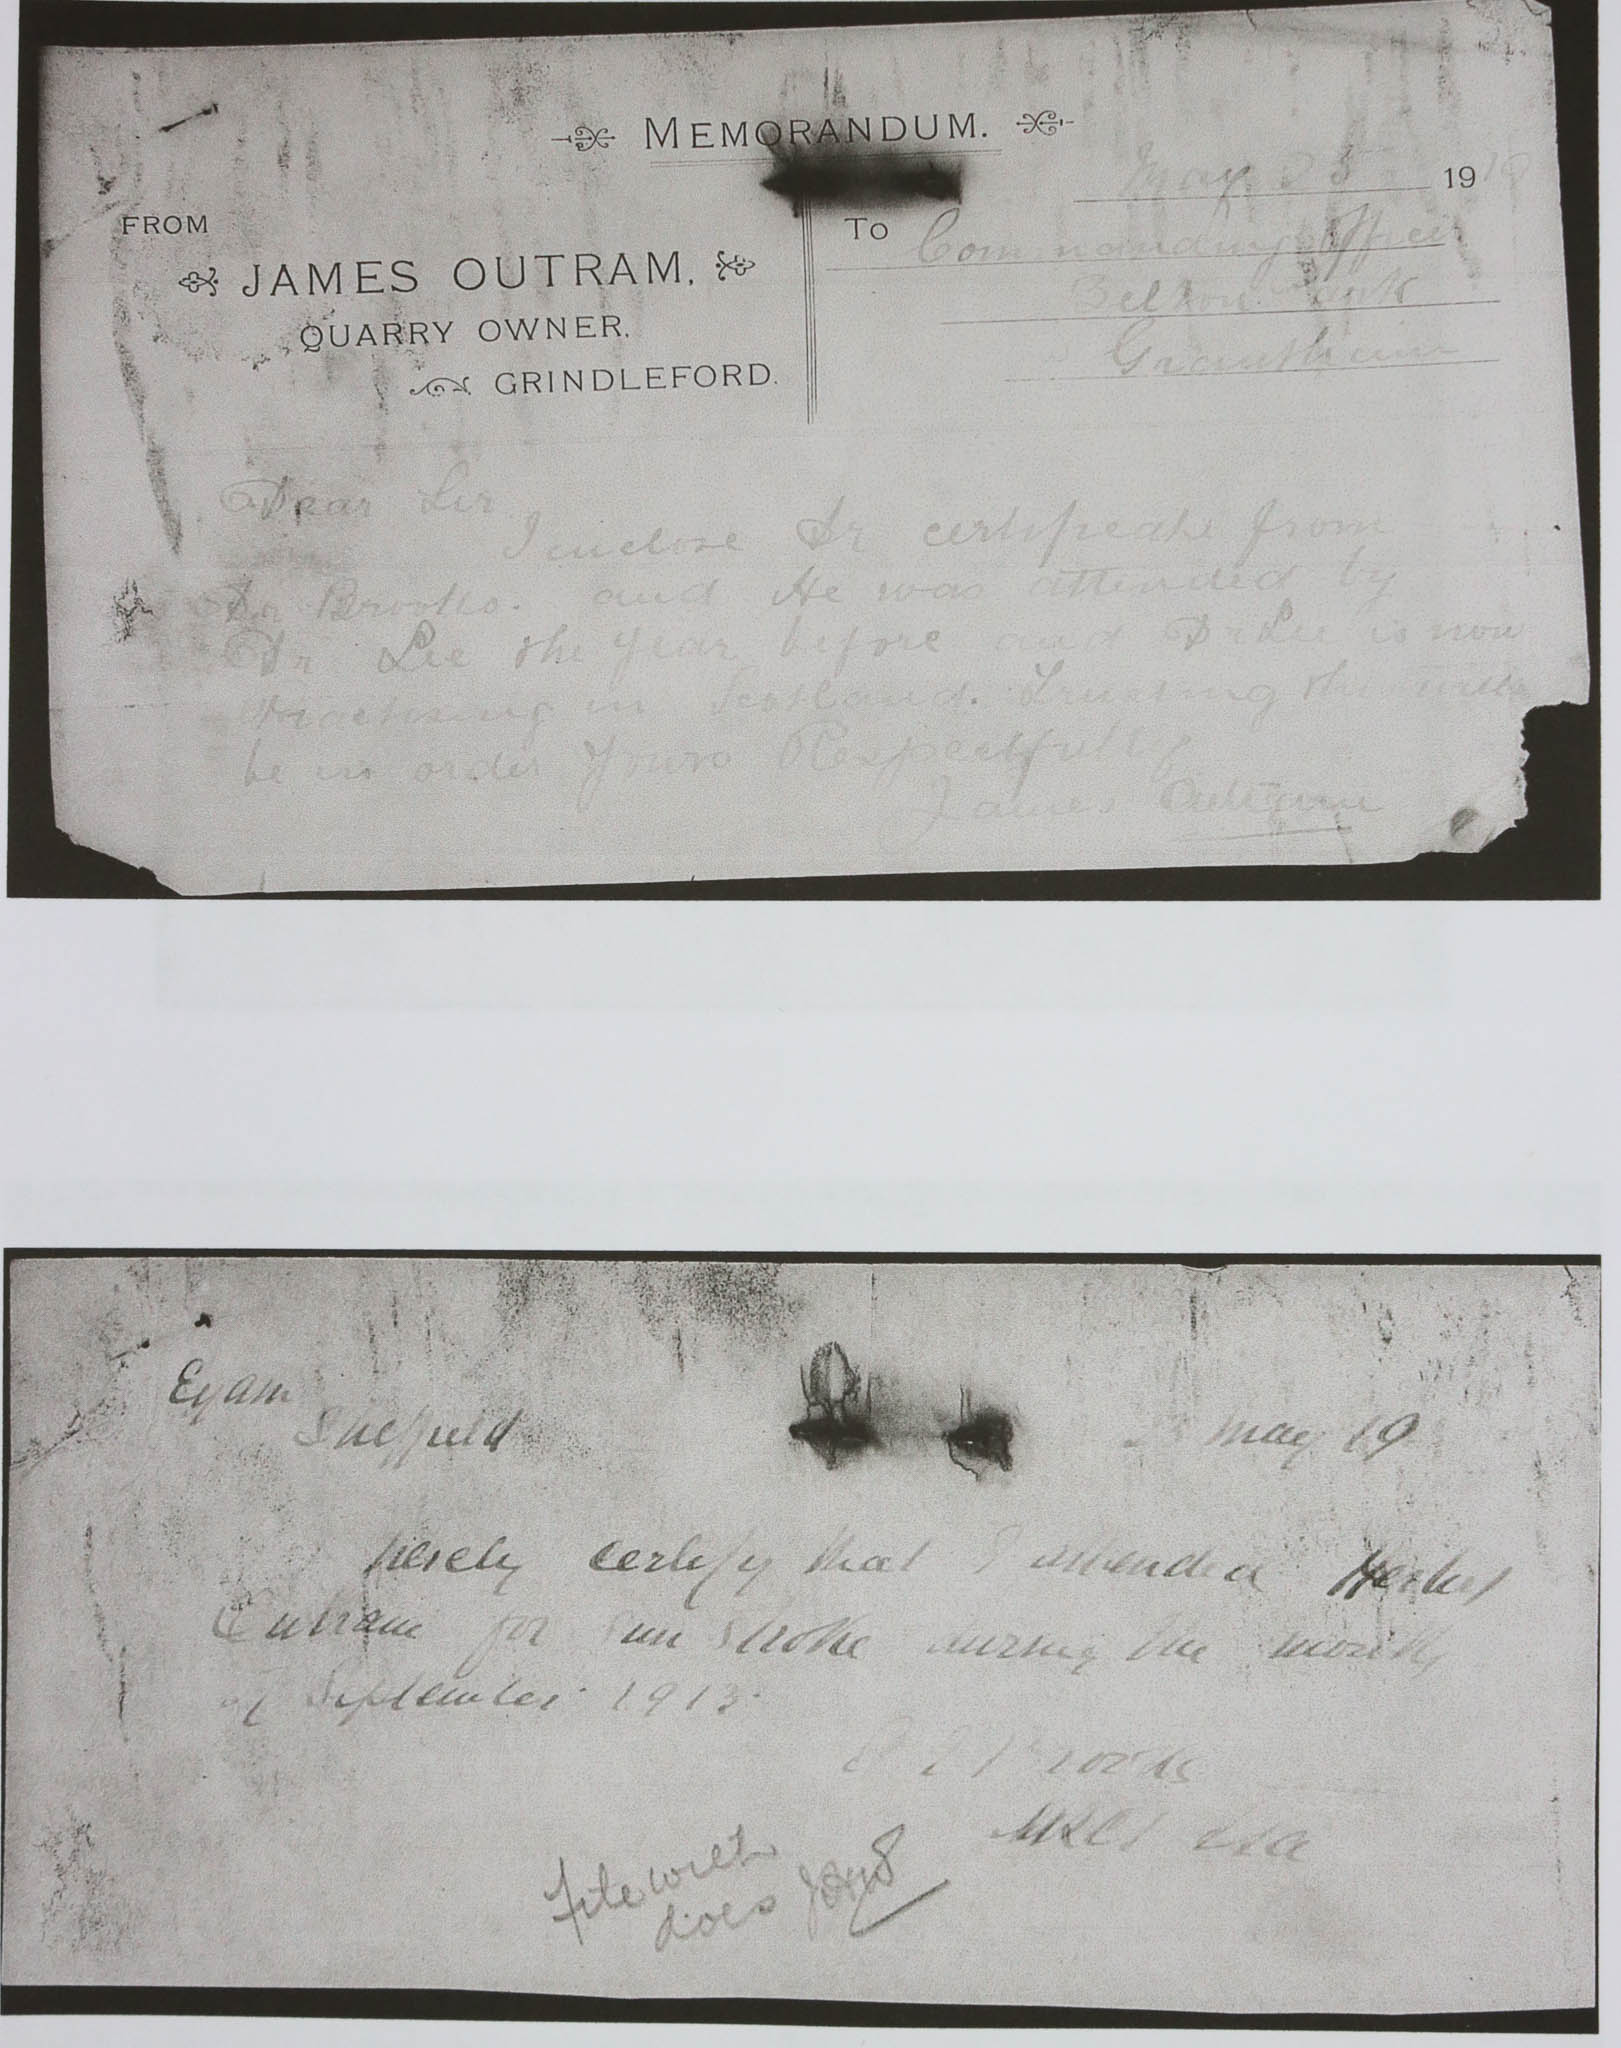 MEMORANDUM.
May 23 19
FROM
JAMES OUTRAM,
QUARRY OWNER,
GRINDLEFORD.
To Commanding Officer
Belton Park
Grantham
Dear Sir
I enclose Dr certificate from
Dr Brooks. and He was attended by
Dr Lee the year before and Dr Lee is now
Practising in Scotland. Trusting this will
be in order Yours Respectfully
James Outram
Eyam
Sheffield
May 19
hereby certify that I attended Herbert
Outram for Sun Stroke during the month
of September 1913.
Brooks
MRCS LSA
File with
docs